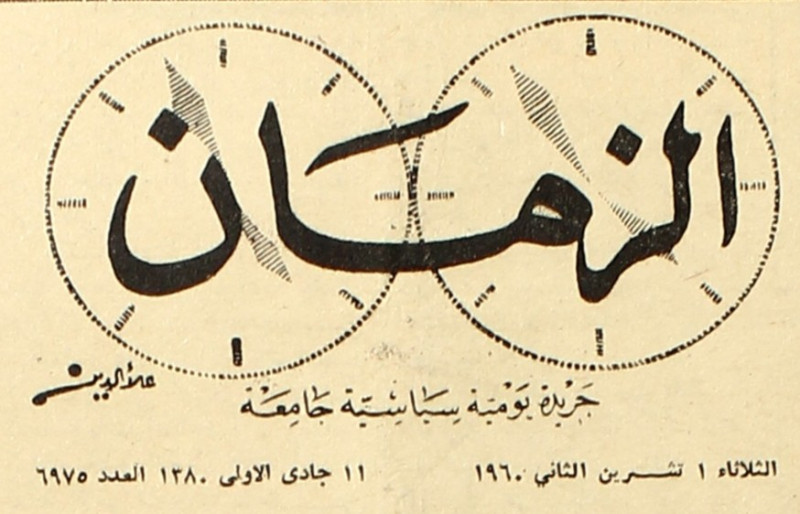 الزمان
علاء الدين
جريدة يومية سياسية جامعة
الثلاثاء ١ تشرين الثاني ١٩٦٠
١١ جمادى الاولى ١٣٨٠ العدد ٦٩٧٥